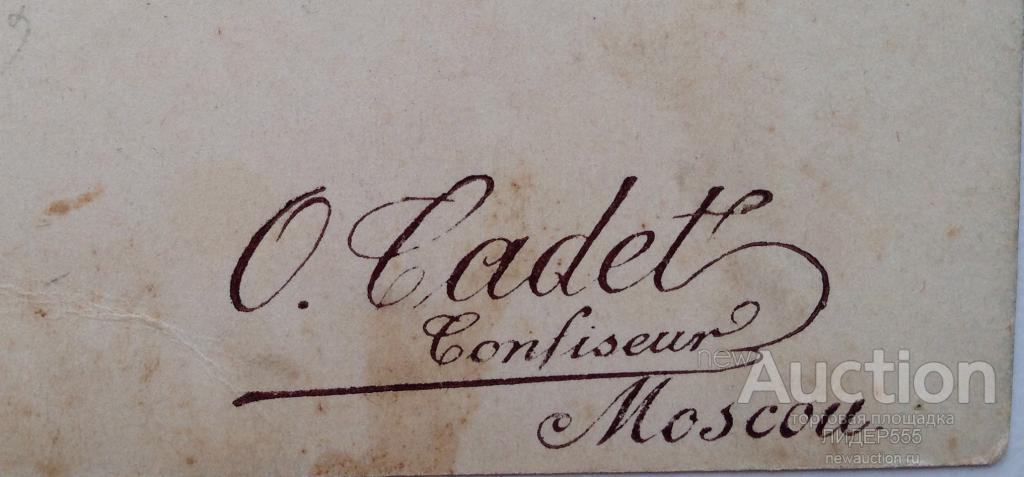 O. Cadet
Confiseur
Moscou
newAuction
торговая площадка
ЛИДЕР555
newauction.ru